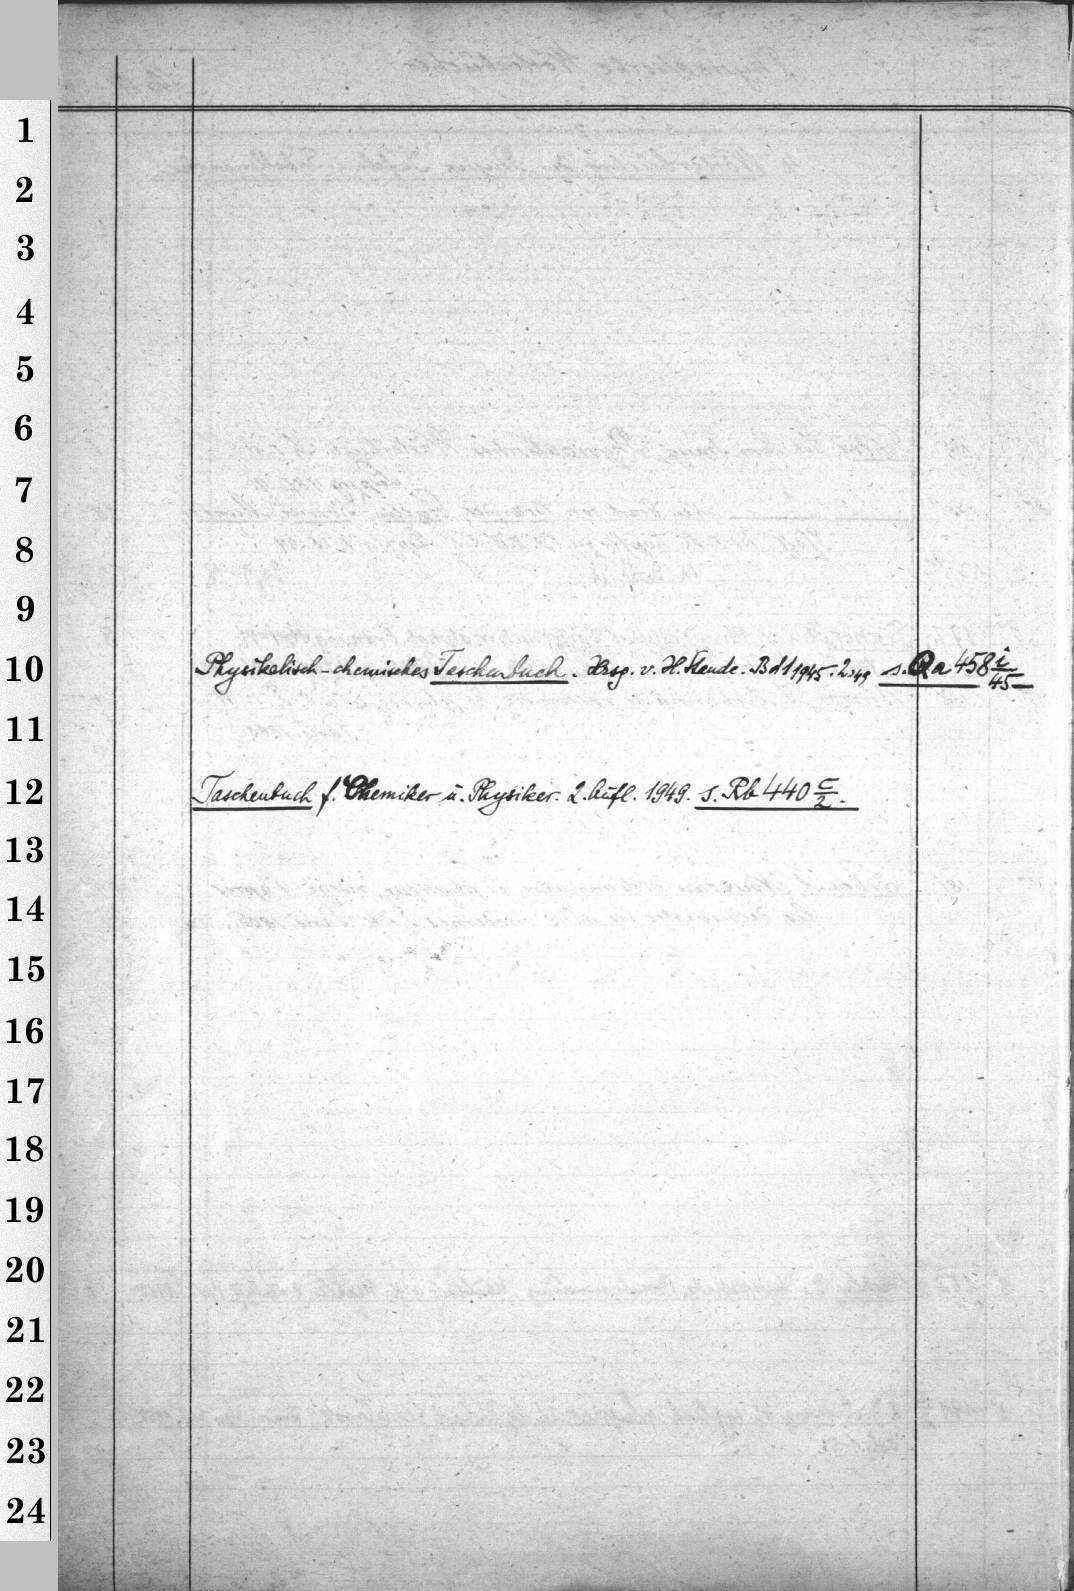 1
2
3
4
5
6
7
8
9
10
Physikalisch-chemisches Taschenbuch. Hrsg. v. H. Staude. Bd 1 1945. 2. 49 s. Qa 458 i/45
11
12
Taschenbuch f. Chemiker u. Physiker. 2. Aufl. 1949. s. Rb 440 c/2.
13
14
15
16
17
18
19
20
21
22
23
24